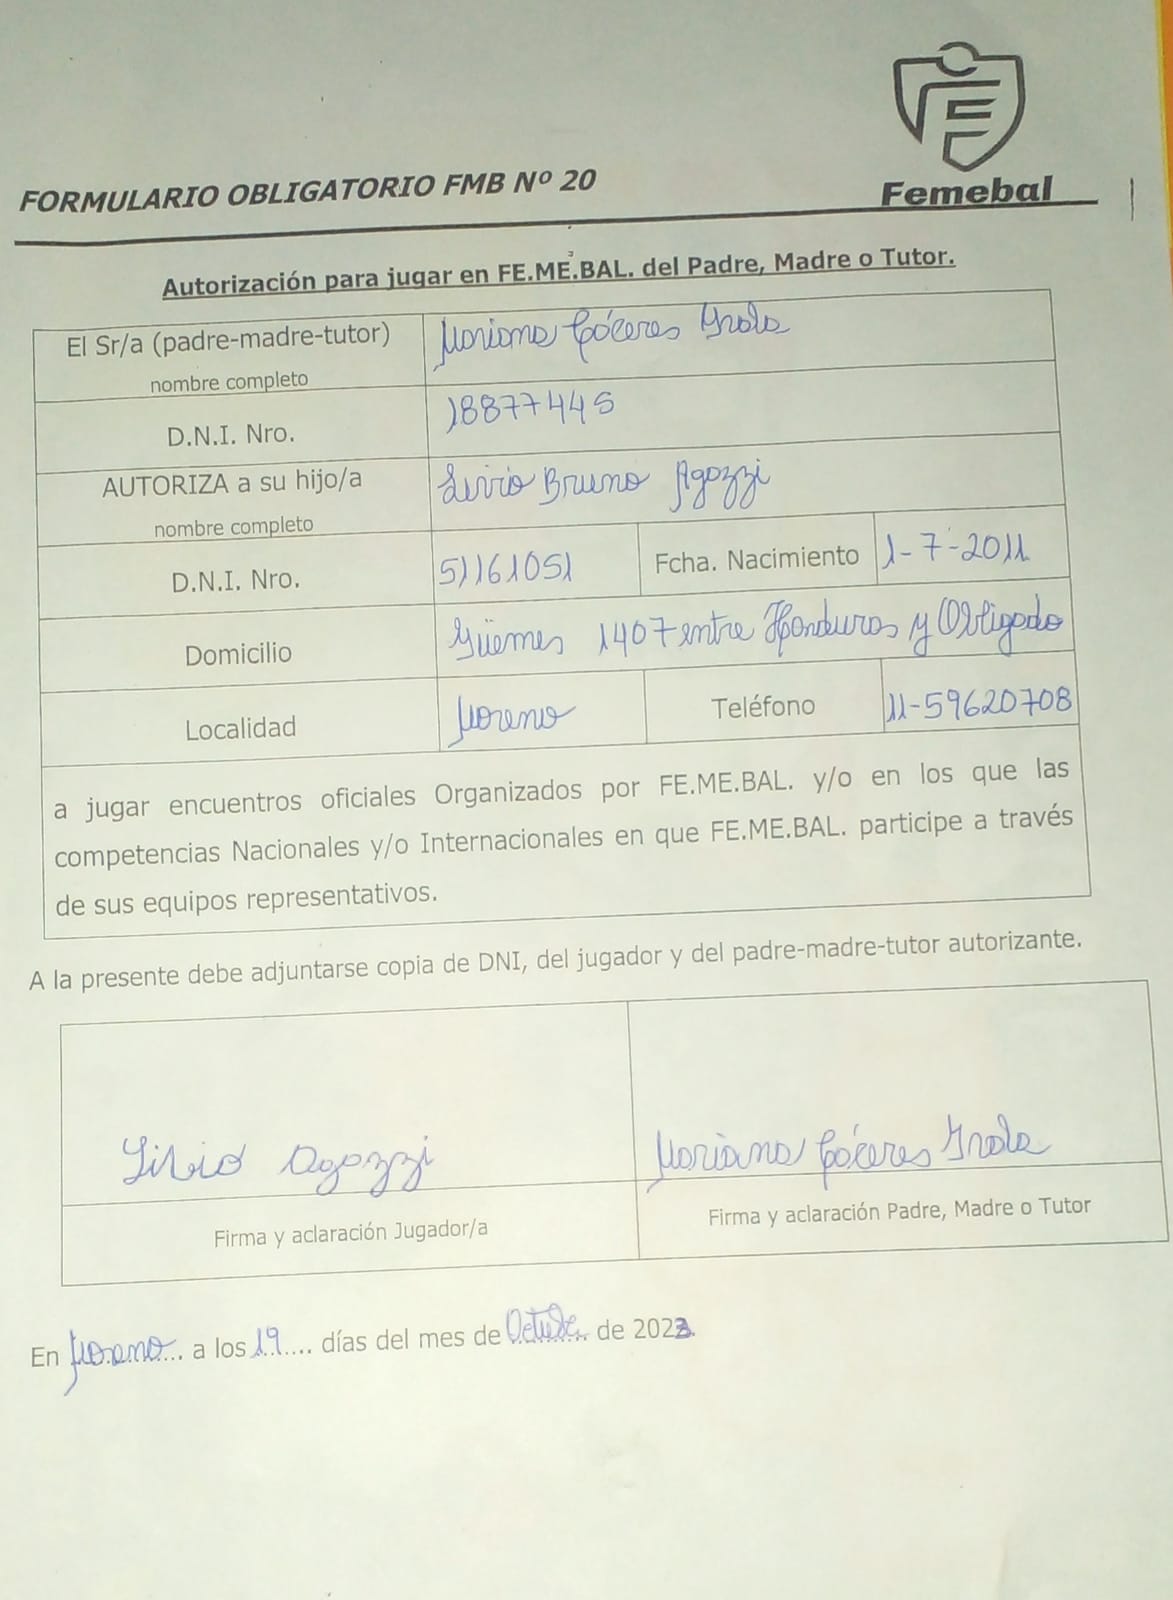 Femebal
FORMULARIO OBLIGATORIO FMB Nº 20
Autorización para jugar en FE.ME.BAL. del Padre, Madre o Tutor.
El Sr/a (padre-madre-tutor) Mariana Cáceres Irala
nombre completo
D.N.I. Nro. 18877445
AUTORIZA a su hijo/a Livio Bruno Agozzi
nombre completo
D.N.I. Nro. 51161051 Fcha. Nacimiento 1-7-2011
Domicilio Güemes 1407 entre Honduras y Obligado
Localidad Moreno Teléfono 11-59620708
a jugar encuentros oficiales Organizados por FE.ME.BAL. y/o en los que las
competencias Nacionales y/o Internacionales en que FE.ME.BAL. participe a través
de sus equipos representativos.
A la presente debe adjuntarse copia de DNI, del jugador y del padre-madre-tutor autorizante.
Livio Agozzi Mariana Cáceres Irala
Firma y aclaración Jugador/a Firma y aclaración Padre, Madre o Tutor
En Moreno a los 19 días del mes de Octubre de 2023.